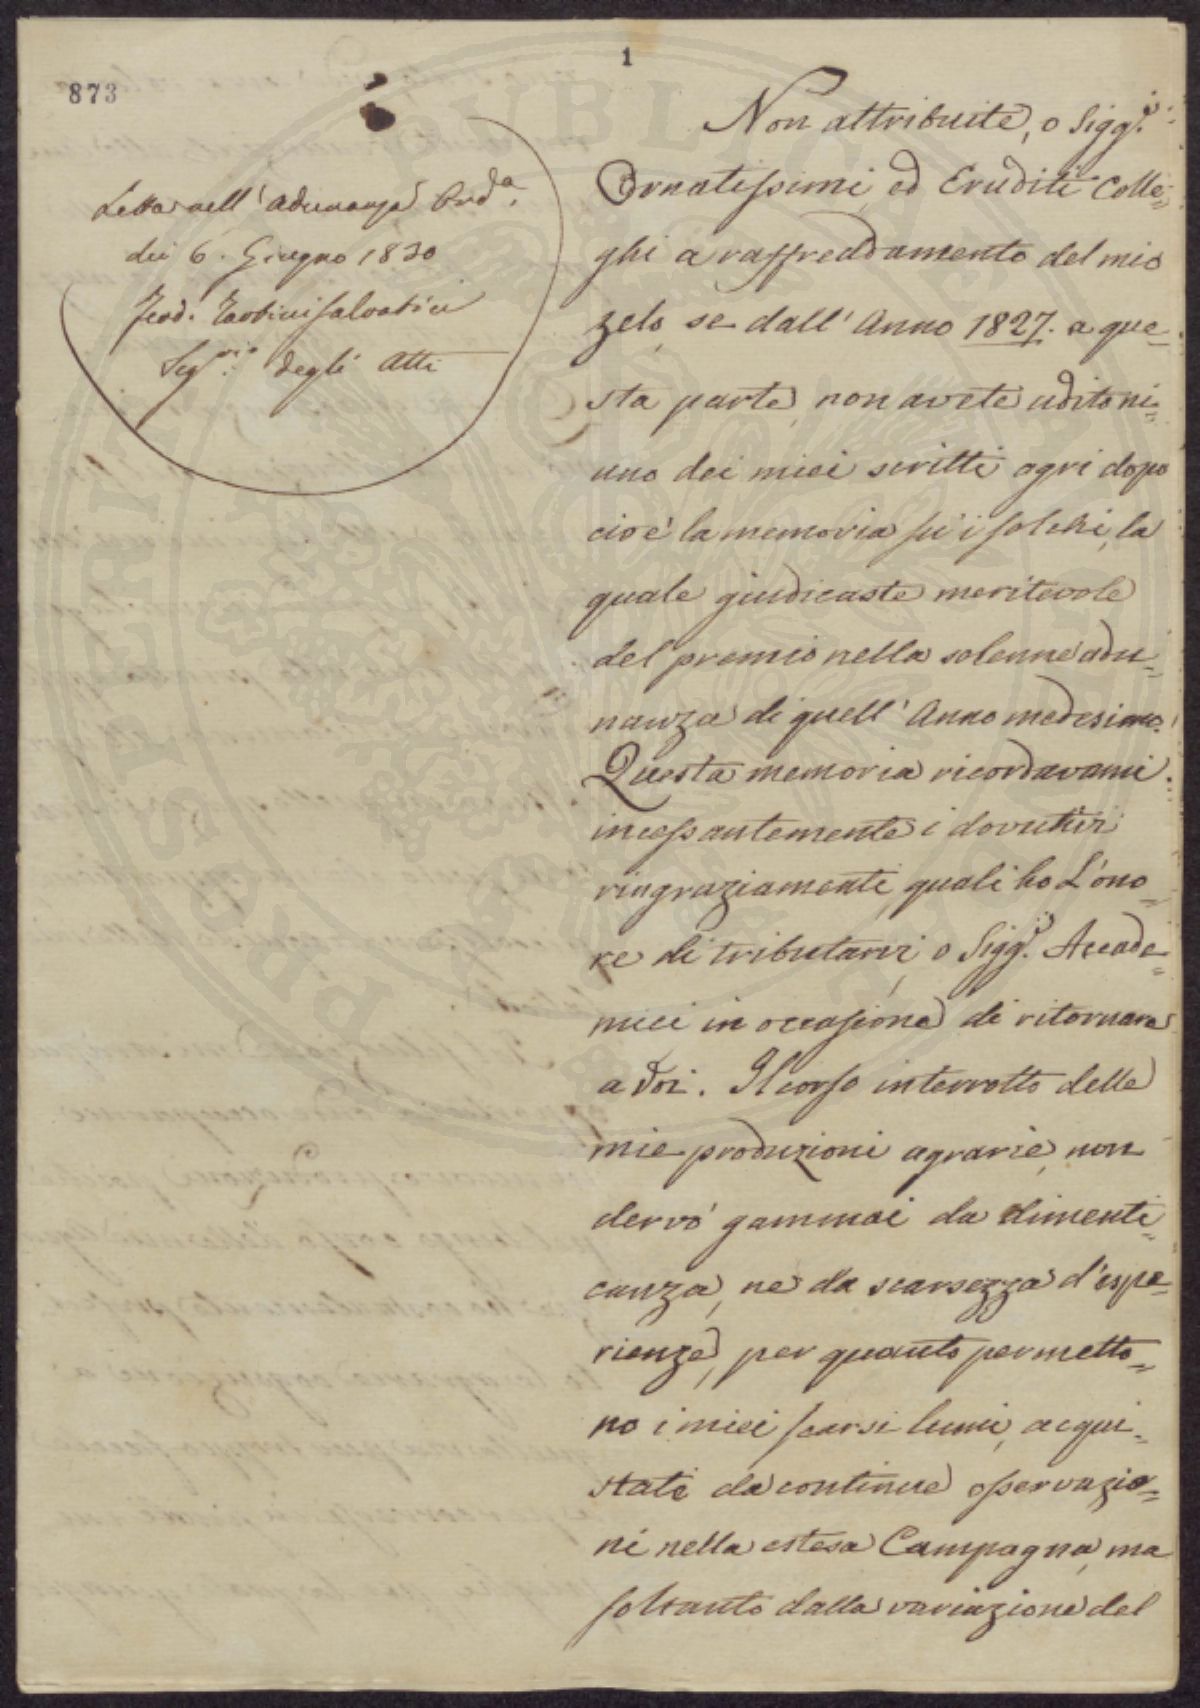 1
873
Letta nell' Adunanza Ord.a
dei 6. Giugno 1830
Ferd. Tartini Salvatici
Seg.rio degli Atti
Non attribuite, o Sigg.i
Ornatissimi, ed Eruditi Colle=
ghi a raffreddamento del mio
zelo, se dall' Anno 1827. a que=
sta parte, non avete udito ni=
uno dei miei scritti agri dopo
cioè la memoria su i solchi, la
quale giudicaste meritevole
del premio nella solenne adu=
nanza di quell' Anno medesimo.
Questa memoria ricordavami
incessantemente i dovutivi
ringraziamenti, quali ho L'ono=
re di tributarvi, o Sigg.i Accade=
mici in occasione di ritornare
a Voi. Il corso interrotto delle
mie produzioni agrarie, non
dervò gammai da dimenti=
canza, ne da scarsezza d'espe=
rienze, per quanto permetto=
no i miei scarsi lumi, acqui=
stati da continue osservazio=
ni nella estesa Campagna, ma
soltanto dalla variazione del
PUBLICAE
PROSPERITATI